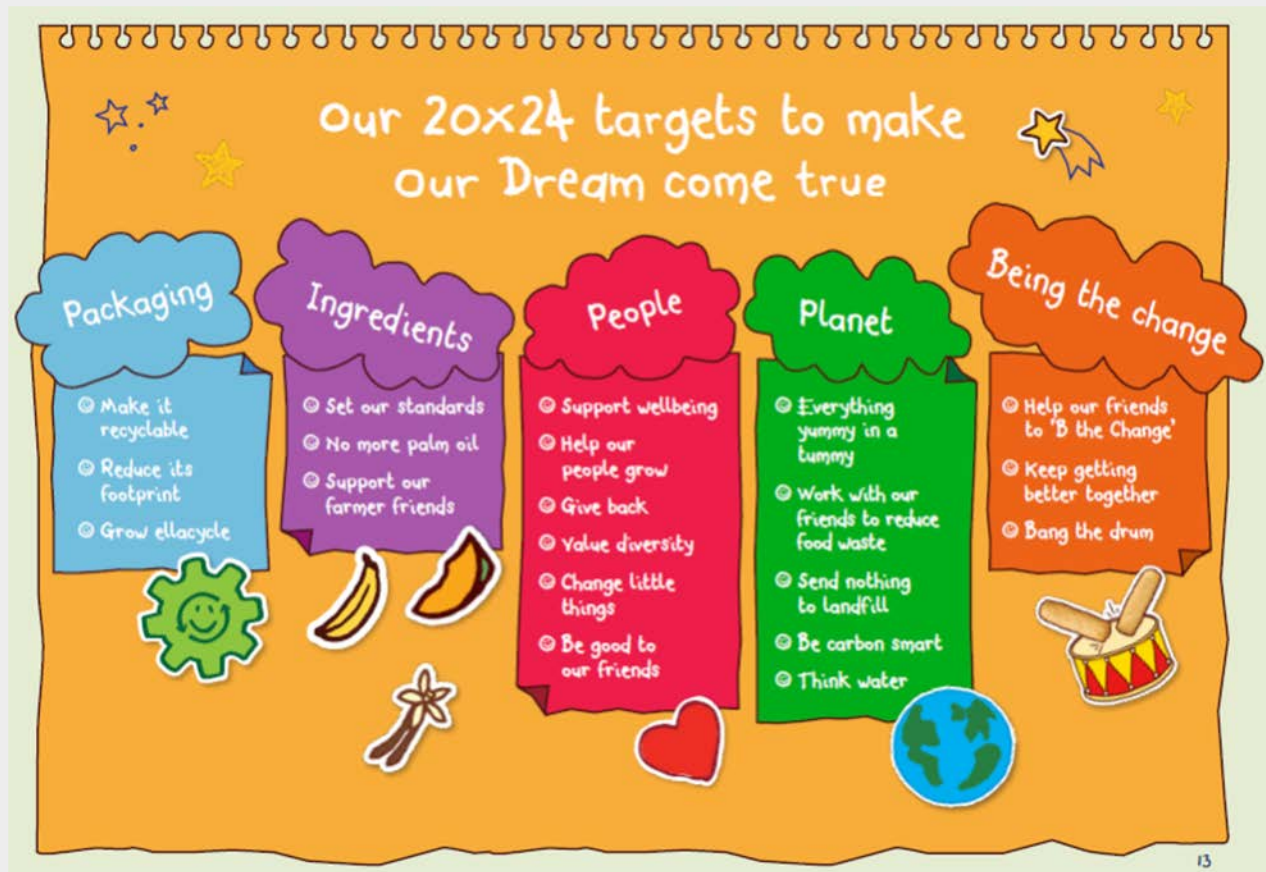 Our 20x24 targets to make
Our Dream come true
Packaging
Make it
recyclable
Reduce its
footprint
Grow ellacycle
Ingredients
Set our standards
No more palm oil
Support our
farmer friends
People
Support wellbeing
Help our
people grow
Give back
Value diversity
Change little
things
Be good to
our friends
Planet
Everything
yummy in a
tummy
Work with our
friends to reduce
food waste
Send nothing
to landfill
Be carbon smart
Think water
Being the change
Help our friends
to 'B the Change'
Keep getting
better together
Bang the drum
13